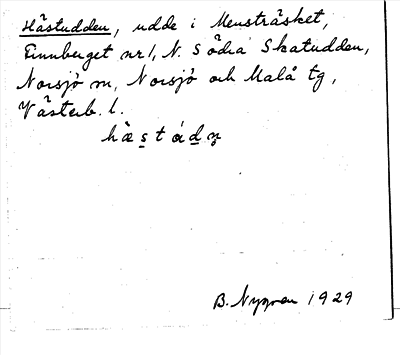 Hästudden, udde i Mensträsket,
Finnberget nr 1, N. Södra Skatudden,
Norsjö sn, Norsjö och Malå tg,
Västerb. l.
B. Nygren 1929